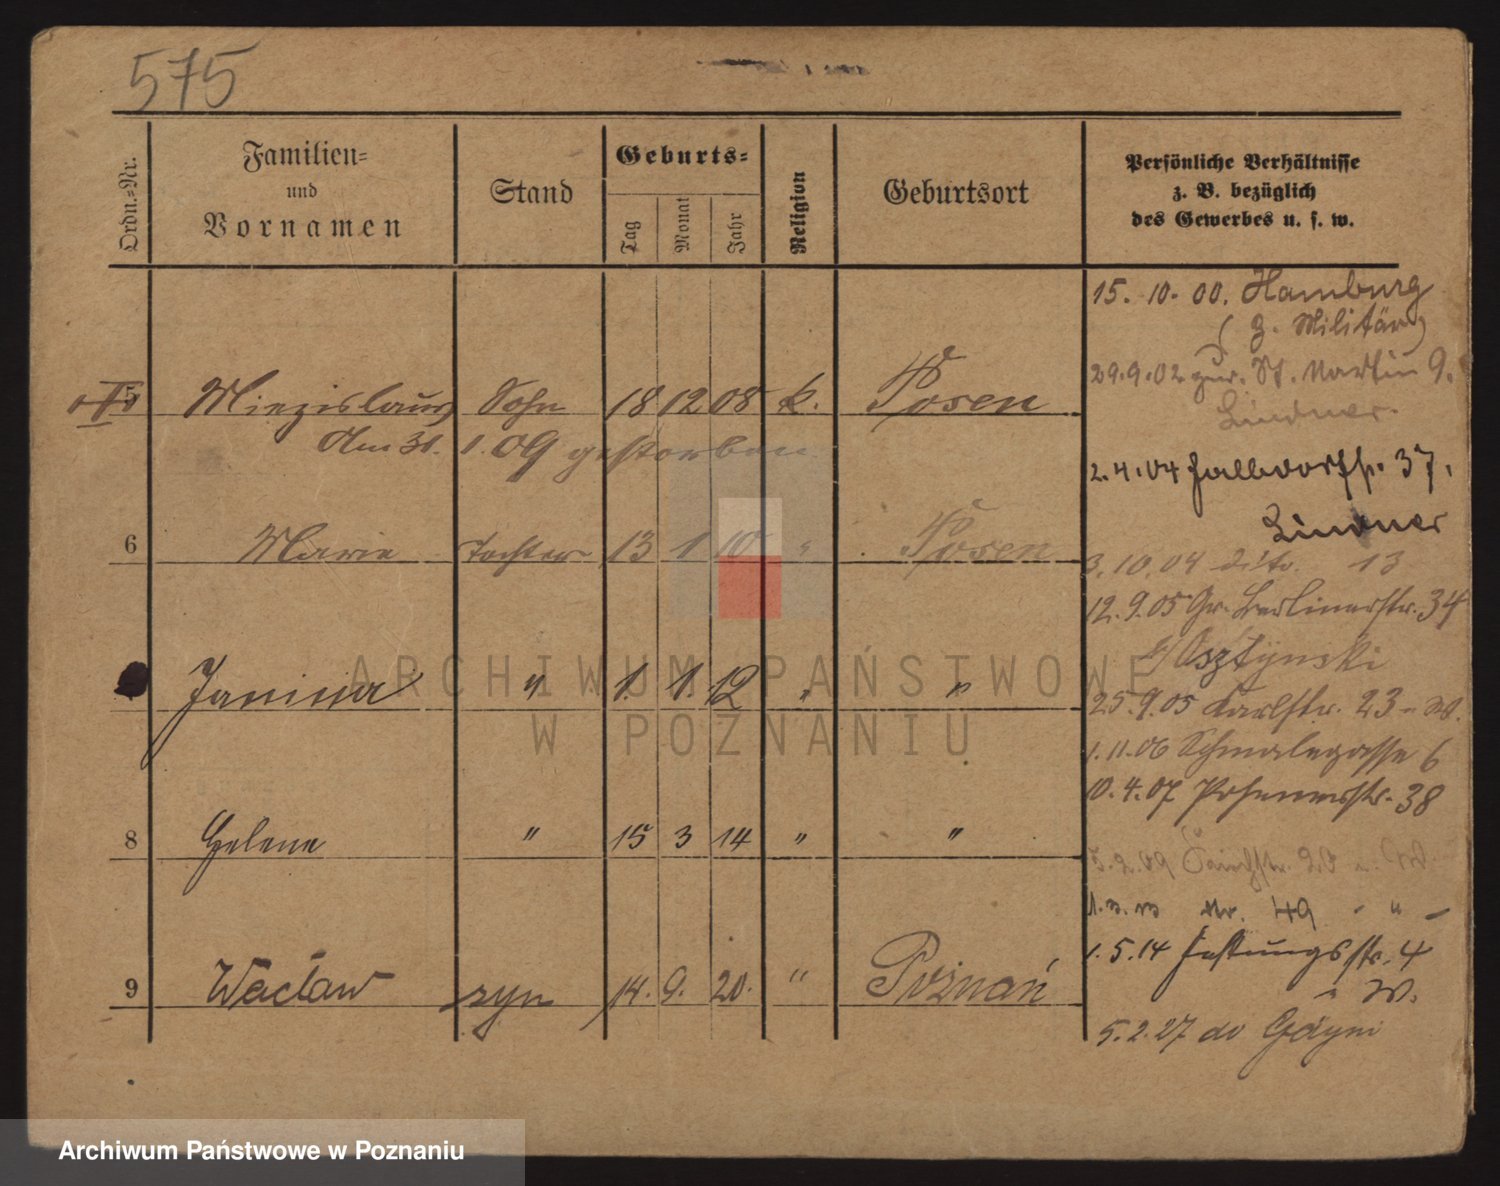 575
Ordn.=Nr.
Familien= und Vornamen
Stand
Geburts=
Tag Monat Jahr
Religion
Geburtsort
Persönliche Verhältnisse z. B. bezüglich des Gewerbes u. s. w.
5 Miezislaus Sohn 18 12 08 k. Posen
Am 31. 1. 09 gestorben
6 Marie Tochter 13 1 10 " Posen
Janina " 1. 1. 12 " "
8 Helene " 15 3 14 " "
9 Wacław syn 14. 9. 20. " Poznań
15. 10. 00. Hamburg
(z. Militär)
29.9.02 zur. St. Martin 9.
Lindner.
2.4.04 Halbdorfstr. 37.
Lindner
3.10.04 dito. 13
12.9.05 Gr. Berlinerstr. 34
b/Osztynski
25.9.05 Karlstr. 23 - W.
1.11.06 Schmalegasse 6
10.4.07 Posenerstr. 38
5.2.09 20 W.
Nr. 49 - " -
1.5.14 Festungsstr. 4
W.
5.2.27 do Gdyni
ARCHIWUM PAŃSTWOWE
W POZNANIU
Archiwum Państwowe w Poznaniu